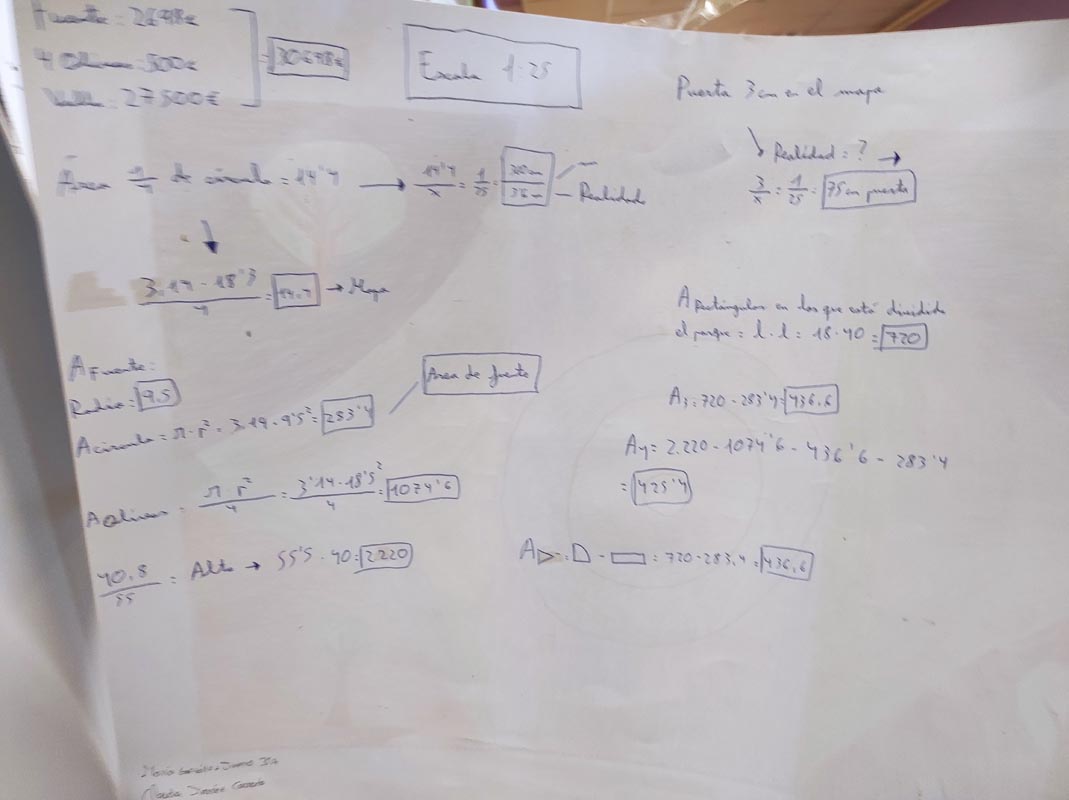 Fuente: 2698€
4 Olivos: 500€
Valla: 27500€
= 30698€
Escala 1:25
Puerta 3 cm en el mapa
Realidad: ? →
3/x = 1/25 = 75cm puerta
Área 1/4 de círculo = 14'4 → 14'4/x = 1/25 =
— Realidad
3.14 · 18'3 / 4 = 14.4 → Mapa
A Rectángulos en los que está dividido
el parque = l · l = 18 · 40 = 720
A Fuente:
Radio = 9.5
Area de fuente
A círculo = π · r² = 3.14 · 9'5² = 283'4
A3 = 720 - 283'4 = 436.6
A4 = 2.220 - 1074'6 - 436'6 - 283'4
= 425'4
A Olivos = π · r² / 4 = 3'14 · 18'5² / 4 = 1074'6
40.8 / 55 = Alto → 55'5 · 40 = 2.220
A = - = 720 - 283.4 = 436.6